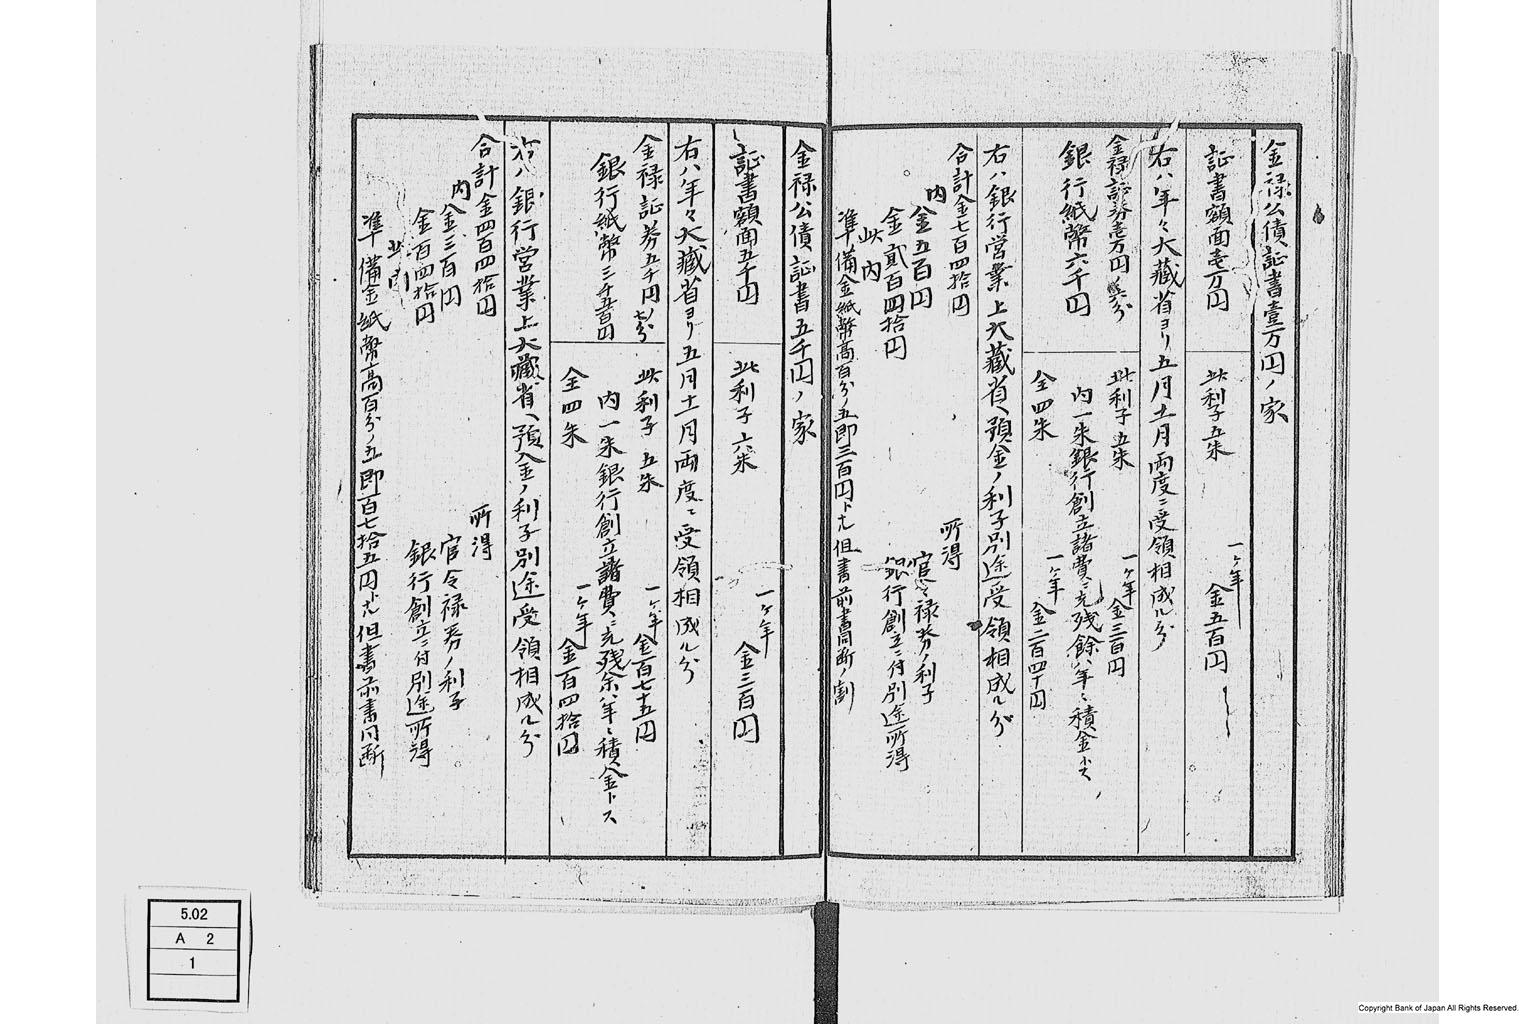 金禄公債証書壹万円ノ家
証書額面壱万円
此利子五朱
一ヶ年
金五百円
右ハ年々大藏省ヨリ五月十一月両度ニ受領相成ル分
金禄証券壱万円ノ六分
此利子五朱
一ヶ年
金三百円
銀行紙幣六千円
内一朱銀行創立諸費ニ充残餘ハ年々積金トス
全四朱
一ヶ年
金二百四十円
右ハ銀行営業上大藏省ヘ預金ノ利子別途受領相成ル分
合計金七百四拾円
所得
内
金五百円
官令禄券ノ利子
金貳百四拾円
銀行創立ニ付別途所得
此内
準備金紙幣高百分ノ五即三百円ト尤但書前書同断ノ割
金禄公債証書五千円ノ家
証書額面五千円
此利子六朱
一ヶ年
金三百円
右ハ年々大藏省ヨリ五月十一月両度ニ受領相成ル分
金禄証券五千円ノ七分
此利子五朱
一ヶ年
金百七十五円
銀行紙幣三千五百円
内一朱銀行創立諸費ニ充残余ハ年々積金トス
全四朱
一ヶ年
金百四拾円
右ハ銀行営業上大藏省ヘ預金ノ利子別途受領相成ル分
合計金四百四拾円
所得
内
金三百円
官令禄券ノ利子
金百四拾円
銀行創立ニ付別途所得
此内
準備金紙幣高百分ノ五即百七拾五円ト尤但書前書同断
5.02
A 2
1
Copyright Bank of Japan All Rights Reserved.